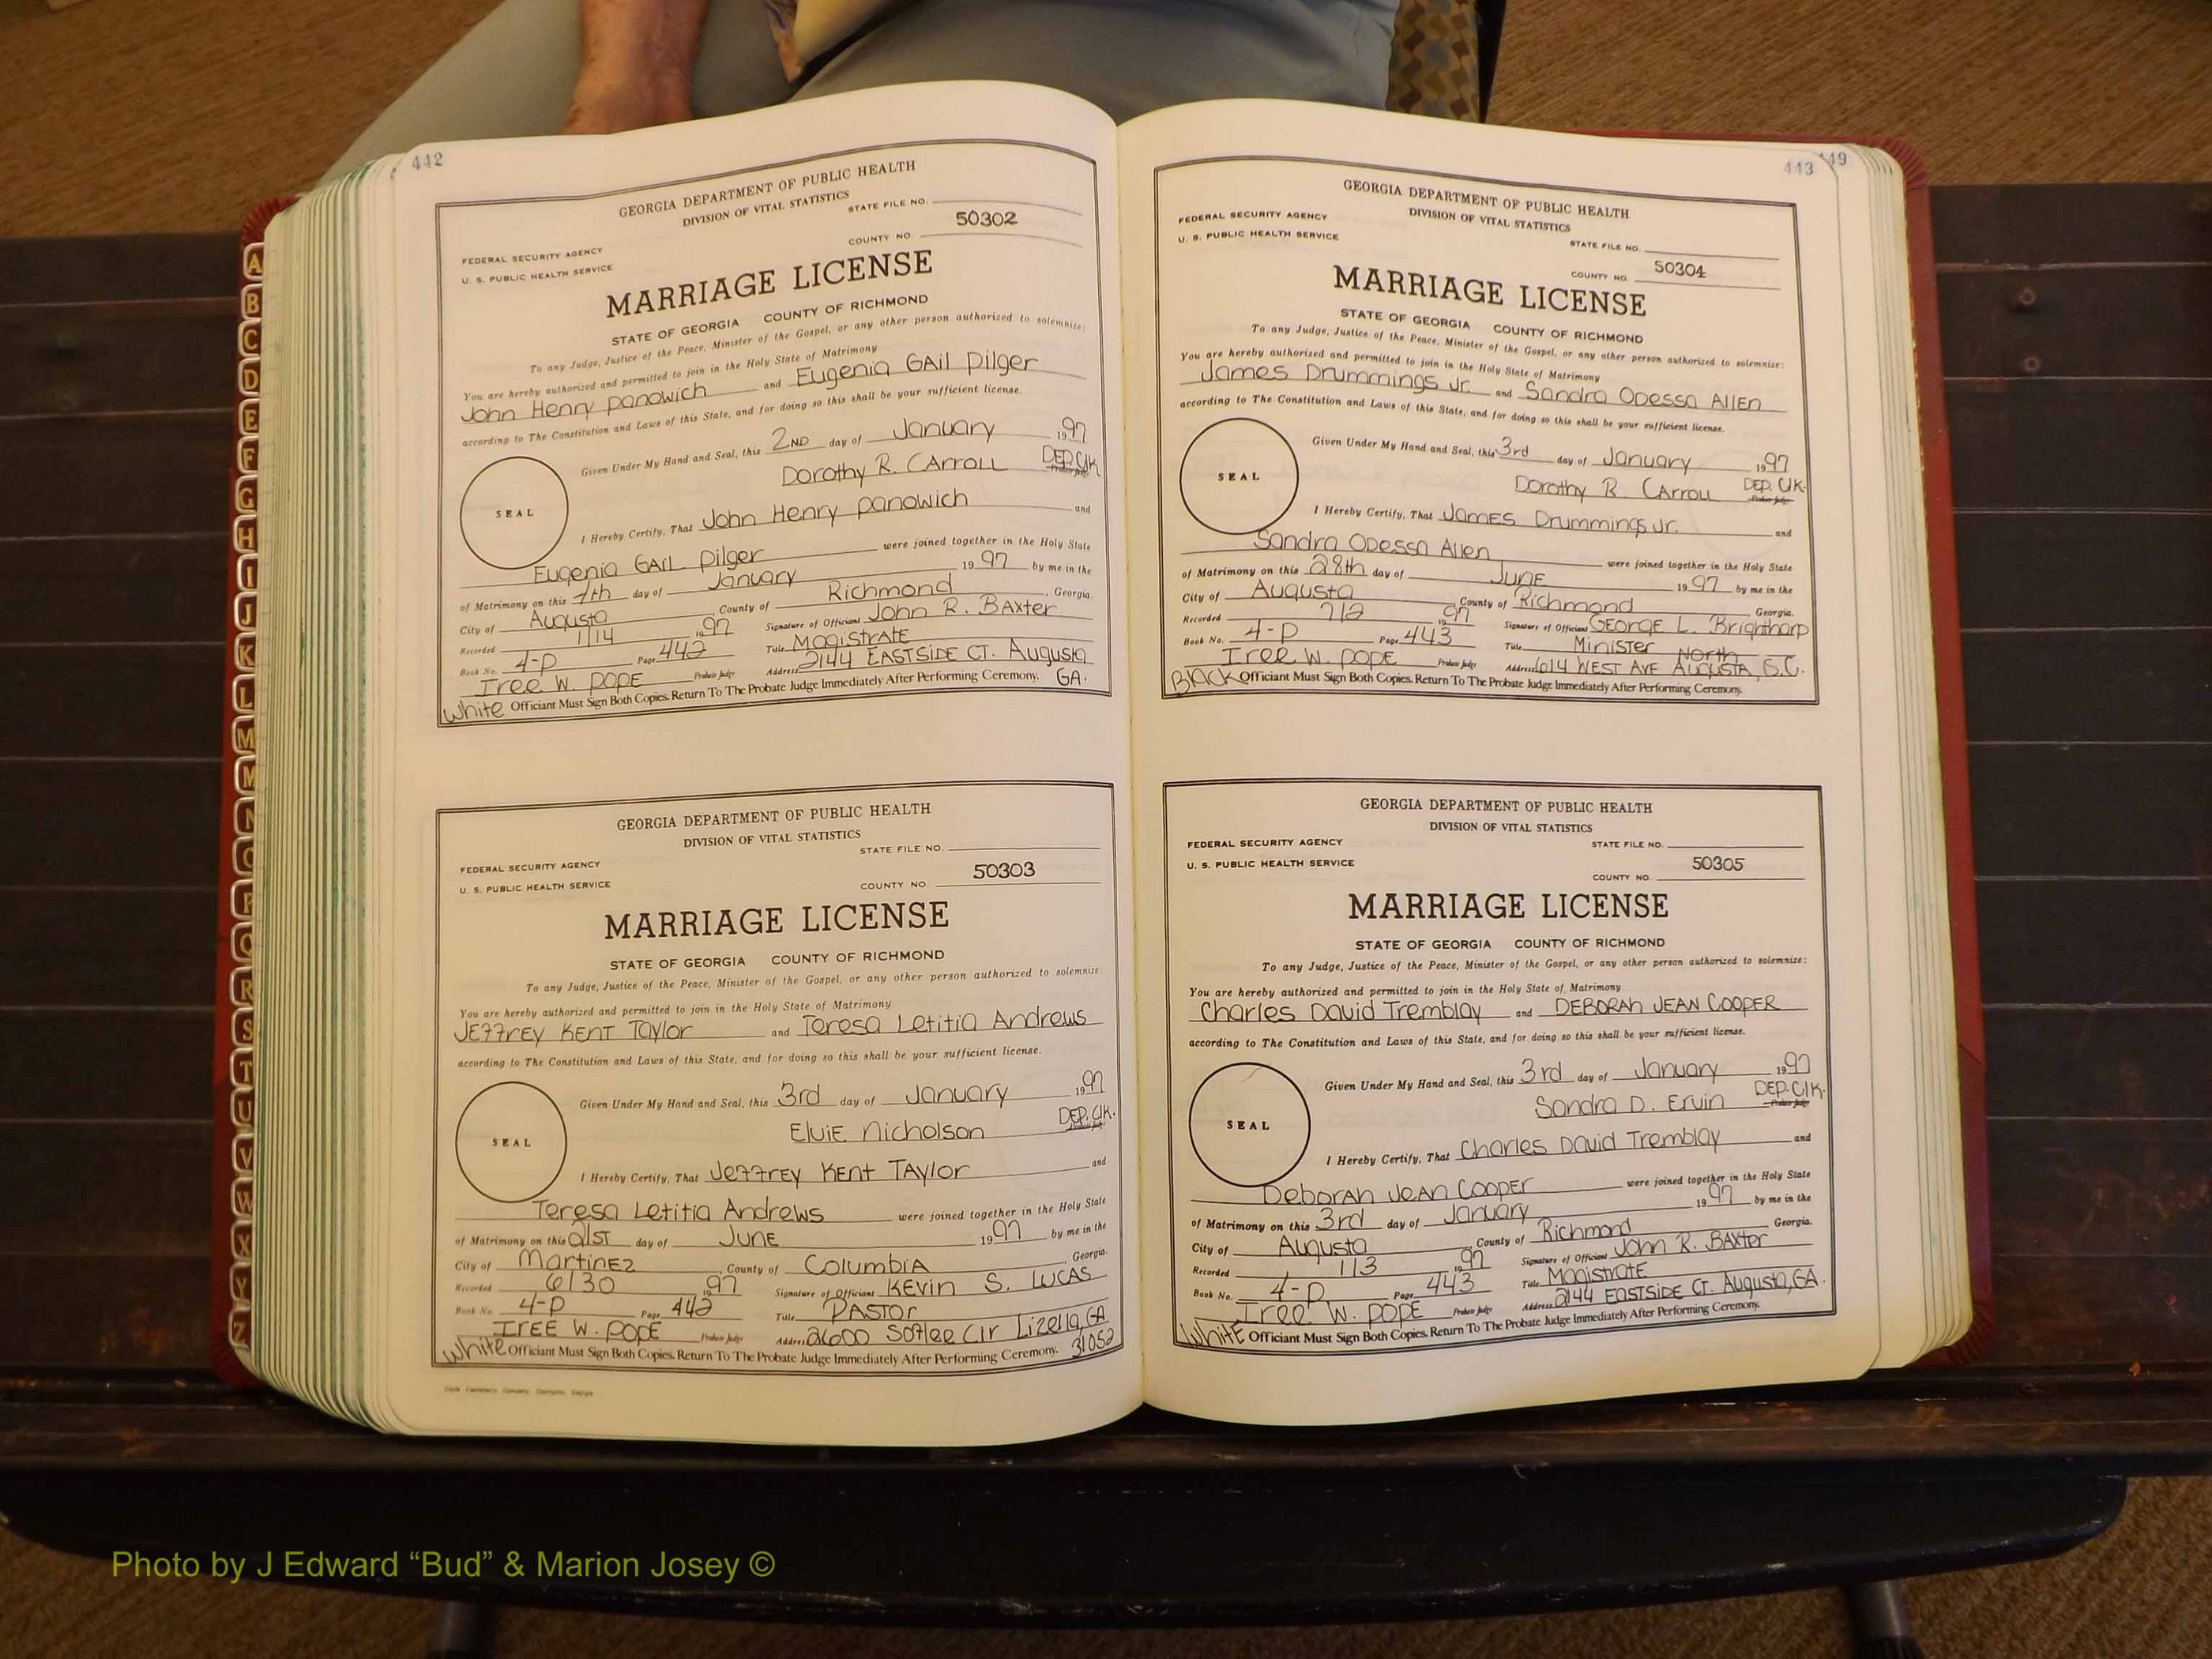 442
GEORGIA DEPARTMENT OF PUBLIC HEALTH
DIVISION OF VITAL STATISTICS
STATE FILE NO.
50302
FEDERAL SECURITY AGENCY
COUNTY NO.
U. S. PUBLIC HEALTH SERVICE
MARRIAGE LICENSE
STATE OF GEORGIA COUNTY OF RICHMOND
To any Judge, Justice of the Peace, Minister of the Gospel, or any other person authorized to solemnize:
You are hereby authorized and permitted to join in the Holy State of Matrimony
John Henry Panowich and Eugenia GAil Pilger
according to The Constitution and Laws of this State, and for doing so this shall be your sufficient license.
Given Under My Hand and Seal, this 2ND day of January 1997
Dorothy R. CArroll DEP. Clk Probate Judge
SEAL
I Hereby Certify, That John Henry Panowich and
Eugenia GAil Pilger were joined together in the Holy State
of Matrimony on this 7th day of January 1997 by me in the
City of Augusta, County of Richmond, Georgia.
Recorded 1/14 1997 Signature of Officiant John R. BAxter
Book No. 4-P Page 442 Title Magistrate
Iree W. POPE Probate Judge Address 2144 EASTSiDE CT. Augusta GA.
White Officiant Must Sign Both Copies. Return To The Probate Judge Immediately After Performing Ceremony.
GEORGIA DEPARTMENT OF PUBLIC HEALTH
DIVISION OF VITAL STATISTICS
STATE FILE NO.
FEDERAL SECURITY AGENCY
50303
U. S. PUBLIC HEALTH SERVICE
COUNTY NO.
MARRIAGE LICENSE
STATE OF GEORGIA COUNTY OF RICHMOND
To any Judge, Justice of the Peace, Minister of the Gospel, or any other person authorized to solemnize:
You are hereby authorized and permitted to join in the Holy State of Matrimony
JEffrEY KENT TAYlor and Teresa Letitia Andrews
according to The Constitution and Laws of this State, and for doing so this shall be your sufficient license.
Given Under My Hand and Seal, this 3rd day of January 1997
ElviE Nicholson DEP. Clk. Probate Judge
SEAL
I Hereby Certify, That JeffrEY KEnt TAYlor and
Teresa Letitia Andrews were joined together in the Holy State
of Matrimony on this 21ST day of JUNE 1997 by me in the
City of MartinEz, County of ColumbiA, Georgia.
Recorded 6/30 1997 Signature of Officiant KEVin S. LUCAS
Book No. 4-P Page 442 Title PASTOr
IrEE W. POPE Probate Judge Address 2600 Soflee Cir Lizella, GA 31052
White Officiant Must Sign Both Copies. Return To The Probate Judge Immediately After Performing Ceremony.
443
449
GEORGIA DEPARTMENT OF PUBLIC HEALTH
DIVISION OF VITAL STATISTICS
FEDERAL SECURITY AGENCY
U. S. PUBLIC HEALTH SERVICE
STATE FILE NO.
COUNTY NO. 50304
MARRIAGE LICENSE
STATE OF GEORGIA COUNTY OF RICHMOND
To any Judge, Justice of the Peace, Minister of the Gospel, or any other person authorized to solemnize:
You are hereby authorized and permitted to join in the Holy State of Matrimony
James Drummings Jr. and Sandra Odessa AllEn
according to The Constitution and Laws of this State, and for doing so this shall be your sufficient license.
Given Under My Hand and Seal, this 3rd day of January 1997
Dorothy R. CArroll DEP. Clk. Probate Judge
SEAL
I Hereby Certify, That JamES Drummings Jr. and
Sandra Odessa Allen were joined together in the Holy State
of Matrimony on this 28th day of JUNE 1997 by me in the
City of Augusta County of Richmond, Georgia.
Recorded 7/2 1997 Signature of Officiant GEorge L. Brightharp
Book No. 4-P Page 443 Title Minister
Iree W. POPE Probate Judge Address 614 WEST AVE North AUgUSTA, S.C.
BlACK Officiant Must Sign Both Copies. Return To The Probate Judge Immediately After Performing Ceremony.
GEORGIA DEPARTMENT OF PUBLIC HEALTH
DIVISION OF VITAL STATISTICS
FEDERAL SECURITY AGENCY
STATE FILE NO.
U. S. PUBLIC HEALTH SERVICE
50305
COUNTY NO.
MARRIAGE LICENSE
STATE OF GEORGIA COUNTY OF RICHMOND
To any Judge, Justice of the Peace, Minister of the Gospel, or any other person authorized to solemnize:
You are hereby authorized and permitted to join in the Holy State of Matrimony
Charles David Tremblay and DEBORAH JEAN COOPER
according to The Constitution and Laws of this State, and for doing so this shall be your sufficient license.
Given Under My Hand and Seal, this 3rd day of January 1997
Sandra D. Ervin DEP. Clk. Probate Judge
SEAL
I Hereby Certify, That Charles David Tremblay and
DeborAH JEAN COOPER were joined together in the Holy State
of Matrimony on this 3rd day of January 1997 by me in the
City of Augusta, County of Richmond, Georgia.
Recorded 1/3 1997 Signature of Officiant John R. BAxter
Book No. 4-P Page 443 Title Magistrate
Iree W. POPE Probate Judge Address 2144 EASTSIDE CT. Augusta, GA.
WhitE Officiant Must Sign Both Copies. Return To The Probate Judge Immediately After Performing Ceremony.
A
B
C
D
E
F
G
H
I
J
K
L
M
M
N
O
P
Q
R
S
T
U
V
W
X
Y
Z
Photo by J Edward “Bud” & Marion Josey ©